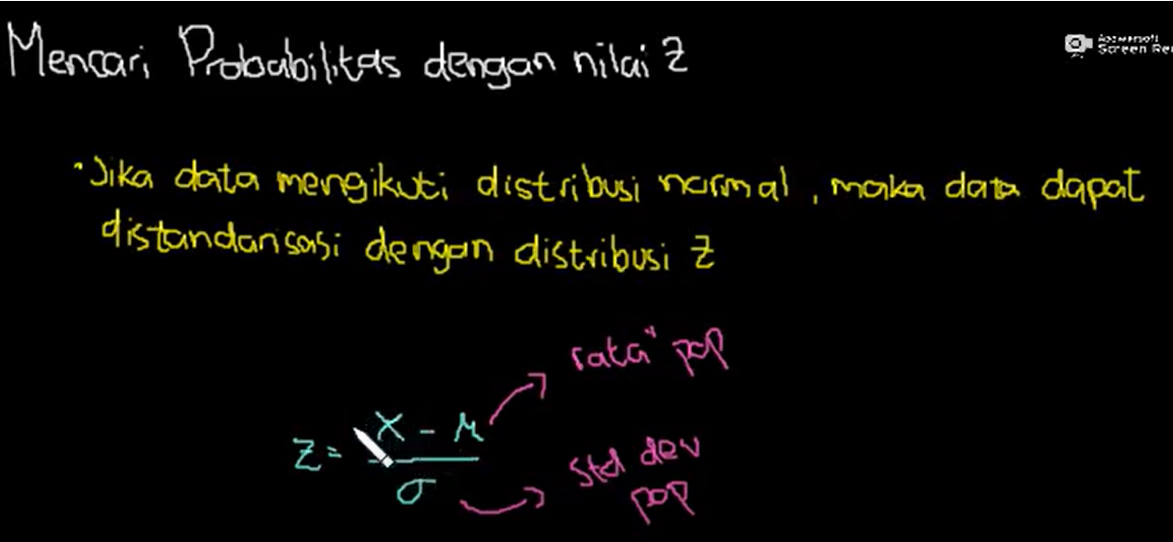 Mencari Probabilitas dengan nilai Z
Apowersoft
Screen Re
• Jika data mengikuti distribusi normal, maka data dapat
distandarisasi dengan distribusi Z
rata" pop
Z = X - μ
σ
Std dev
pop